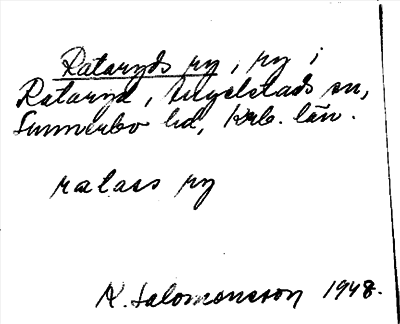 Rataryds ry, ry i
Rataryd, Angelstads sn,
Sunnerbo hd, Krb. län.
ratass ry
K. Salomonsson 1948.